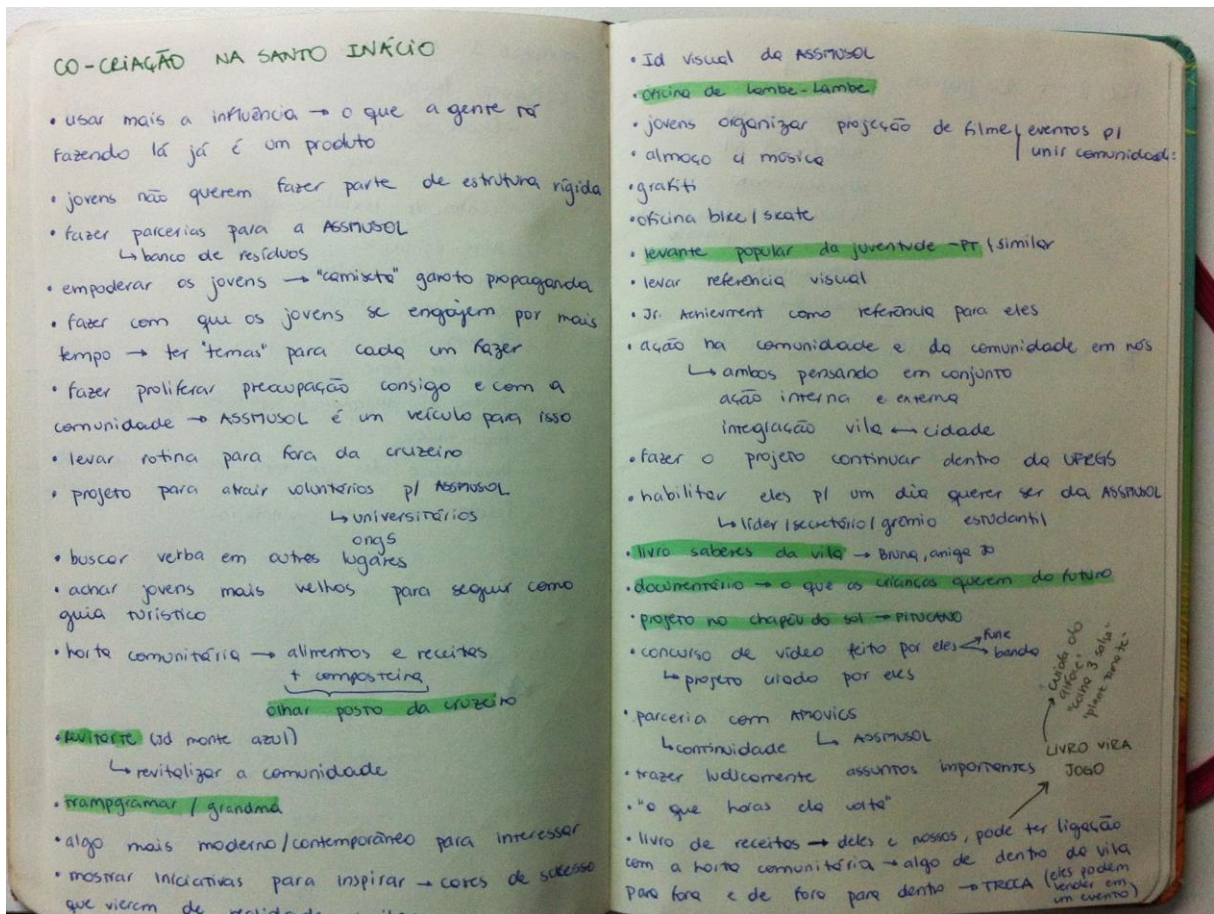 CO-CRIAÇÃO NA SANTO INÁCIO
• usar mais a influência → o que a gente tá
fazendo lá já é um produto
• jovens não querem fazer parte de estrutura rígida
• fazer parcerias para a ASSMUSOL
↳ banco de resíduos
• empoderar os jovens → "camiseta" garoto propaganda
• fazer com que os jovens se engajem por mais
tempo → ter "temas" para cada um fazer
• fazer proliferar preocupação consigo e com a
comunidade → ASSMUSOL é um veículo para isso
• levar rotina para fora da cruzeiro
• projeto para atrair voluntários p/ ASSMUSOL
↳ universitários
ongs
• buscar verba em outros lugares
• achar jovens mais velhos para seguir como
guia turístico
• horta comunitária → alimentos e receitas
+ composteira
olhar posto da cruzeiro
• revitarte (Jd monte azul)
↳ revitalizar a comunidade
• trampgramar / grandma
• algo mais moderno/contemporâneo para interessar
• mostrar iniciativas para inspirar → cases de sucesso
que vieram de
• Id visual da ASSMUSOL
• oficina de lambe-lambe
• jovens organizar projeção de filme | eventos p/
unir comunidade:
• almoço c/ música
• grafiti
• oficina bike / skate
• levante popular da juventude - PT / similar
• levar referência visual
• Jr. Achievment como referência para eles
• ação na comunidade e da comunidade em nós
↳ ambos pensando em conjunto
ação interna e externa
integração vila ↔ cidade
• fazer o projeto continuar dentro da UFRGS
• habilitar eles p/ um dia querer ser da ASSMUSOL
↳ líder / secretário / grêmio estudantil
• livro saberes da vila → Bruna, amiga
• documentário → o que as crianças querem do futuro
• projeto no chapéu do sol → PITUCANO
• concurso de vídeo feito por eles < funk
banda
↳ projeto criado por eles
• parceria com AMOVICS
↳ continuidade ↳ ASSMUSOL
• trazer ludicamente assuntos importantes
• "o que horas ela volta"
• livro de receitas → deles e nossos, pode ter ligação
com a horta comunitária → algo de dentro da vila
para fora e de fora para dentro → TROCA (eles podem
vender em
um evento)
LIVRO VIRA
JOGO
"cuida do
alface"
"colha 3 salsa"
"plante tomate"